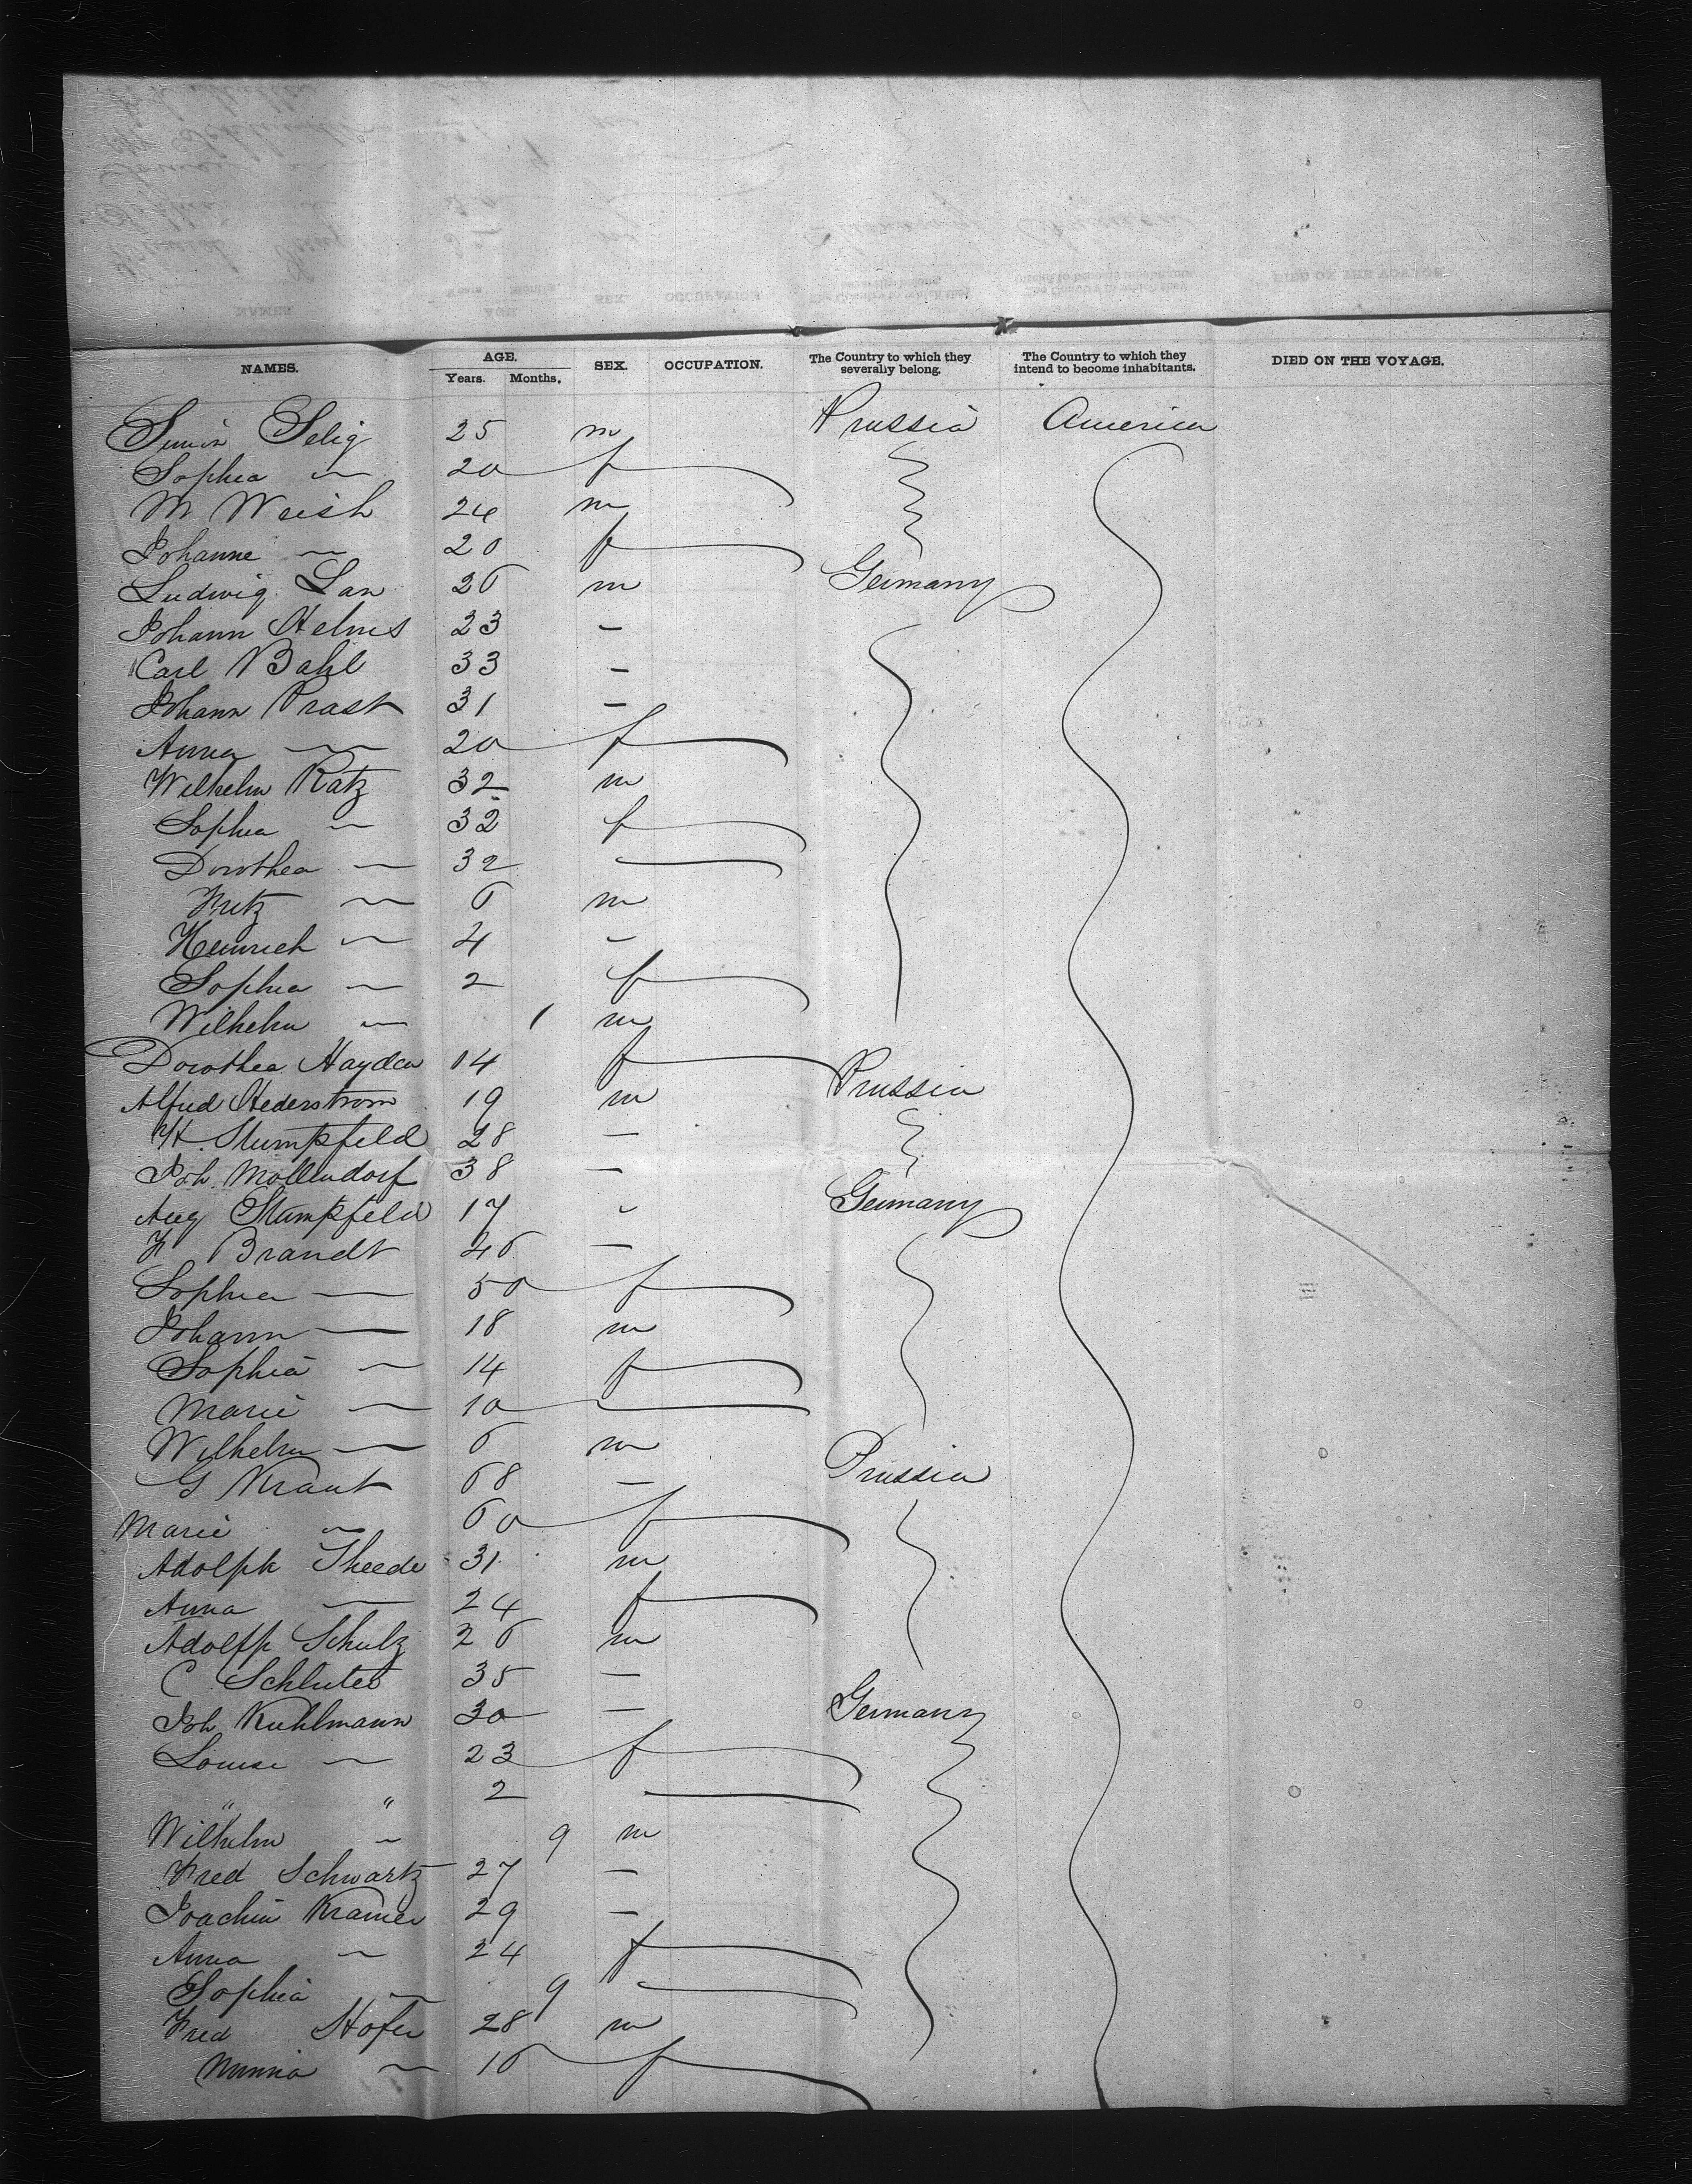 NAMES. AGE. Years. Months. SEX. OCCUPATION. The Country to which they severally belong. The Country to which they intend to become inhabitants. DIED ON THE VOYAGE.
Simon Selig 25 m Prussia America
Sophia — 20 f
M Weish 24 m
Johanne — 20 f
Ludwig Lau 26 m Germany
Johann Helms 23 —
Carl Bahl 33 —
Johann Prast 31 —
Anna — 20 f
Wilhelm Katz 32 m
Sophia — 32 f
Dorothea — 32 —
Fritz — 6 m
Heinrich — 4 —
Sophia — 2 f
Wilhelm — 1 m
Dorothea Hayden 14 f Prussia
Alfred Hederstrom 19 m
H. Stumpfeld 28 —
Joh. Mollendorf 38 —
Aug Stumpfeld 17 — Germany
F Brandt 46 —
Sophia — 50 f
Johann — 18 m
Sophia — 14 f
Marie — 10 —
Wilhelm — 6 m
G Kraut 68 — Prussia
Marie — 60 f
Adolph Theede 31 m
Anna — 24 f
Adolph Schulz 26 m
C Schluter 35 —
Joh Kuhlmann 30 — Germany
Louise — 23 f
" " 2 —
Wilhelm — 9 m
Fred Schwartz 27 —
Joachim Kramer 29 —
Anna — 24 f
Sophia — 9 —
Fred Hofer 28 m
Minna — 16 f